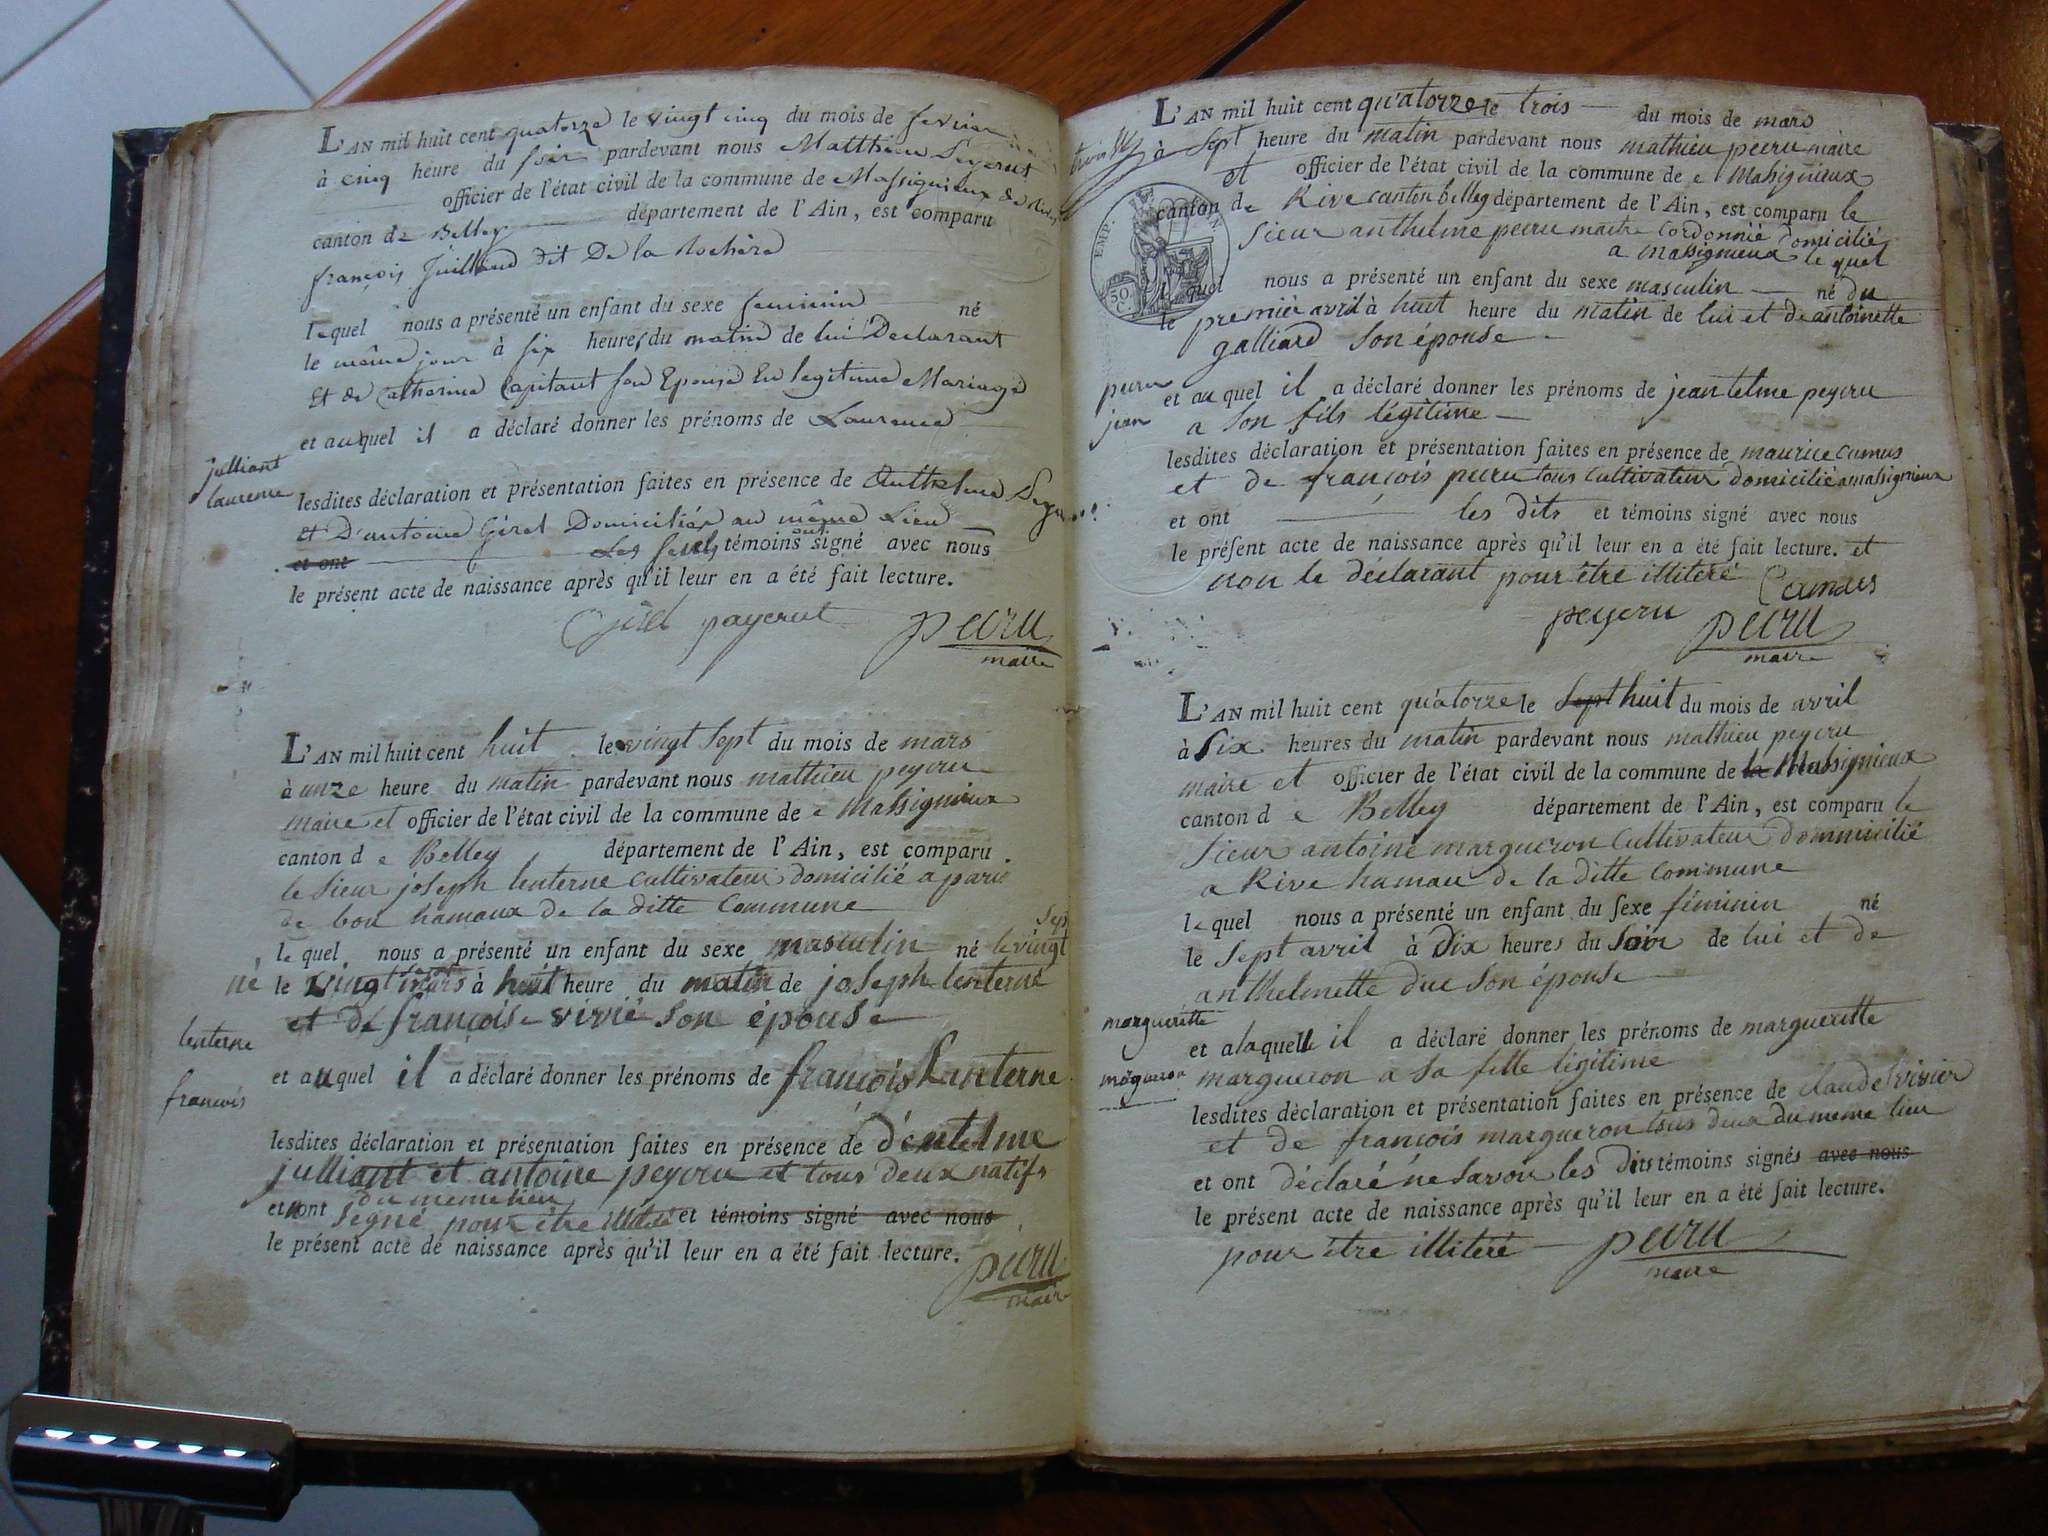 L'AN mil huit cent quatorze le vingt cinq du mois de fevrier
à cinq heure du soir pardevant nous Matthieu Peyerut
officier de l'état civil de la commune de Massignieux de Rives
canton de Belley département de l'Ain, est comparu
françois Juilland dit De la Rochère
lequel nous a présenté un enfant du sexe feminin né
le même jour à six heures du matin de lui Declarant
Et de Catherine Capitant son Epouse En legitime Mariage
et auquel il a déclaré donner les prénoms de Laurence
julliant
laurence
lesdites déclaration et présentation faites en présence de Anthelme
Et D'antoine Girel Domiciliés au même Lieu
et ont Les seuls témoins ont signé avec nous
le présent acte de naissance après qu'il leur en a été fait lecture.
Girel payerut pecru
maire
L'AN mil huit cent huit le vingt sept du mois de mars
à unze heure du matin pardevant nous mathieu peyeru
maire et officier de l'état civil de la commune de e Massignieux
canton d e Belley département de l'Ain, est comparu
le sieur joseph lenterne cultivateur domicilié a parie
de bou hamaux de la ditte commune
sept
le quel nous a présenté un enfant du sexe masculin né le vingt
né le vingt mars à huit heure du matin de joseph lenterne
et de françoise vivié son épouse
lenterne
et auquel il a déclaré donner les prénoms de françois Lanterne
francois
lesdites déclaration et présentation faites en présence de d'entelme
julliant et antoine peyeru et tous deux natifs
du meme lieu
et nont segné pour être illitéré et témoins signé avec nous
le présent acte de naissance après qu'il leur en a été fait lecture.
pecru
maire
L'AN mil huit cent quatorze le trois du mois de mars
à sept heure du matin pardevant nous mathieu pecru maire
et officier de l'état civil de la commune de e Massignieux
canton de Rive canton belley département de l'Ain, est comparu le
sieur anthelme pecru maitre cordonnié domicilié
a massignieux le quel
EMP.
30
C.
lequel nous a présenté un enfant du sexe masculin né du
le premié avril à huit heure du matin de lui et de antoinette
galliard son épouse
pecru
jean
et au quel il a déclaré donner les prénoms de jean telme peyeru
a son fils légitime
lesdites déclaration et présentation faites en présence de maurice camus
et de françois pecru tous cultivateur domicilié a massignieux
et ont les dits et témoins signé avec nous
le présent acte de naissance après qu'il leur en a été fait lecture. et
non le déclarant pour être illitéré Camus
peyeru pecru
maire
L'AN mil huit cent quatorze le sept huit du mois de avril
à six heures du matin pardevant nous mathieu peyeru
maire et officier de l'état civil de la commune de la Massignieux
canton d e Belley département de l'Ain, est comparu le
sieur antoine margueron cultivateur dommicilié
a Rive hamau de la ditte commune
le quel nous a présenté un enfant du sexe féminin né
le sept avril à dix heures du soir de lui et de
anthelmette duc son épouse
margueritte
et alaquelle il a déclaré donner les prénoms de margueritte
margueron
margueron a sa fille légitime
lesdites déclaration et présentation faites en présence de claude vivier
et de françois margueron tous deux du meme lieu
et ont déclaré ne savoir les dits témoins signés avec nous
le présent acte de naissance après qu'il leur en a été fait lecture.
pour être illitéré pecru
maire